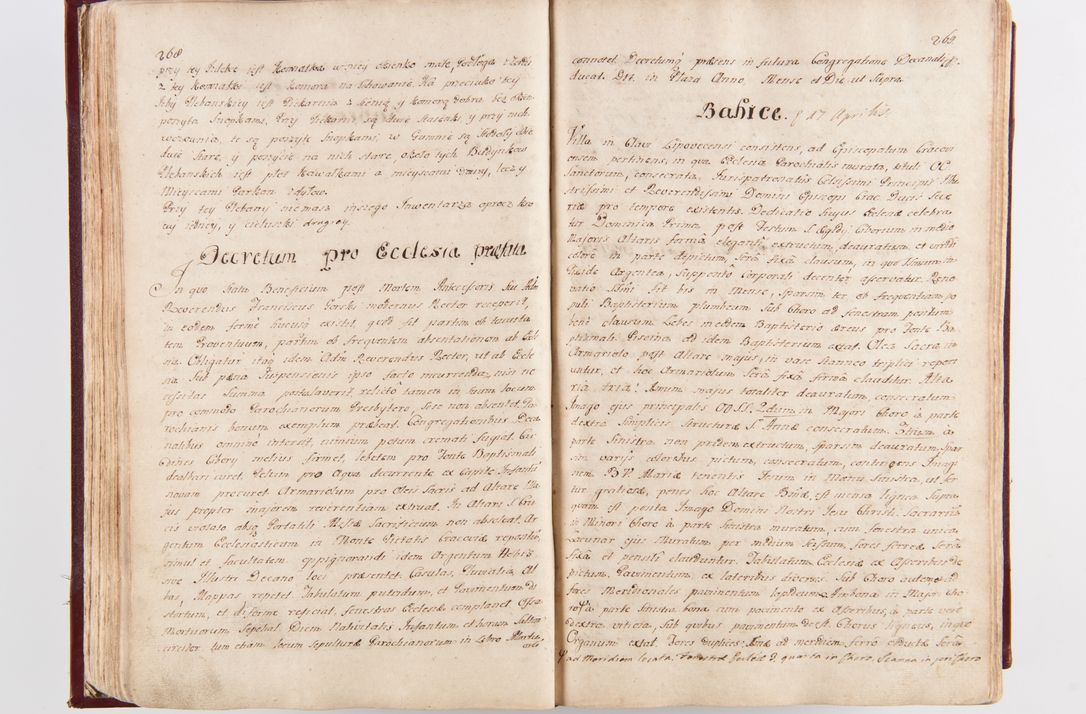 268
przy tey Izbebce iest Komnatka w niey okienko małe, podłoga
z tey Komnatki iest Komora na chowanie. Na przeciwko tey
Izby Plebanskiey iest Piekarnia z sienią y Komorą dobra bez okien
poszyta Snopkami, Przy Piekarni są dwie Staienki y przy nich
wozownia, te są poszyte Snopkami, w Gumnie są Stodoły
dwie stare, y poszycie na nich stare, około tych Budynkow
Plebanskich iest płot Kawałkami a mieyscami
Mieyscami Parkan zdyłow.
Przy tey Plebanij niemasz inszego Inwentarza oprocz Kro
wy iedney, y cieluszki drugiey.
Decretum pro Ecclesia præfata
In quo Statu Beneficium post Mortem Antecessoris Sui
Reverendus Franciscus Gorski modernus Rector receperit,
in eodem fermè hucusq existit, quod fit partim ob
tem Proventuum, partim ob frequentem absentationem ab Eccle
sia. Obligatur itaq idem Adm Reverendus Rector, ut ab Eccle
sia Sub pæna Suspensionis ipso facto incurrenda, nisi ne
cessitas Summa postulaverit relicto tamen in Suum locum
pro commodo Parochianorum Presbytero, Sese non absentet, Pa
rochianis bonum exemplum præbeat. Congregationibus Deca
nalibus omnino intersit, nimium potum cremati fugiat
Chori melius firmet, lebetem pro Fonte Baptismali
dealbari curet, Pelvim pro Aqua decurrente ex Capite Infantis
novam procuret Armariolum pro Oleis Sacris ad Altare Ma
jus propter majorem reverentiam extruat. In Altari S. Cru
cis violato absq Portatili Missæ Sacrificium non absolvat. Ar
gentum Ecclesiasticum in Monte Pietatis Cracoviæ repositum,
nimul et facultatem oppignorandi idem Argentum Nobis
sive Illustri Decano loci præsentet. Casulas, Pluvialia, Al
bas, Mappas reparet Tabulatum putridum, et Pavimentum
stortum, et disforme reficiat, fenestras Ecclesiæ complanet Ossa
Mortuorum Sepeliat Diem Nativitatis Infantum et horum
tum etiam locum Sepulturæ Parochianorum in Libro
269
connotet. Decretumq præsens in futura Congregatione Decanali
ducat. Dtt. in Plaza Anno Mense et Die ut Supra
Babice. d 17 Aprilis.
Villa in Clave Lipovecensi consistens, ad Episcopatum Cracovi
ensem pertinens, in qua Ecclesia Parochialis murata, tituli OO.
Sanctorum, consecrata. Jurispatronatûs Celsissimi Principis Illu
strissimi et Reverendissimi Domini Episcopi Crac. Ducis Seve
riæ pro tempore existentis. Dedicatio hujus Ecclesiæ celebra
tur Dominica Prima post Festum S. Ægidij Ciborium in medio
Majoris Altaris formâ eleganti extructum, deauratum, et viridi
colore in parte depictum, serâ fixâ clausum, in quo
Pixide Argentea, Supposito Corporali decenter asservatur. Reno
vatio fit bis in Mense, Sparsim ter ob frequentiam po
puli Baptisterium plumbeum Sub Choro ad fenestram positum
benè clausum Lebes in eodem Baptisterio æreus pro Fonte Ba
ptismali. Piscina ad idem Baptisterium extat. Olea Sacra in
Armariolo post Altare majus, in vase stanneo triplici reperi
untur, et hoc Armariolum Serâ fixâ firmâ clauditur. Alta
ria tria: Unum majus totaliter deauratum, consecratum.
Imago ejus principalis OO.SS. 2dum in Majori Choro à parte
dextra simplicis structuræ S. Annæ consecratum. 3tium à
parte Sinistra non pridem extructum, Sparsim deauratum, Spar
sim varijs coloribus pictum, consecratum, continens Imagi
nem B.V. Mariæ tenentis Jesum in Manu Sinistra, ut fer
tur gratiosæ, penes hoc Altare est mensa lignea Supra
quam est posita Imago Domini Nostri Jesu Christi. Sacrarium
in Minori Choro à parte Sinistra muratum, cum fenestra unica
Lacunar ejus Muratum per medium scissum, fores ferreæ Serâ
fixâ et pensili clauduntur. Tabulatum Ecclesiæ ex Asseribus de
pictum, Pavimentum ex lateribus diversis. Sub Choro autem ad
fores Meridionales pavimentum lapideum. Ambona in Majori Cho
ro à parte Sinistra bona cum pavimento ex Asseribus, à parte verò
dextra vitrea, Sub quibus pavimentum deest. Chorus ligneus, in quo
Organum extat. Fores duplices: Unæ ad meridiem ferro obductæ Serâ
ad Meridiem locata, fenestræ Ecclesiæ 2 quarta in Choro, Scamna in